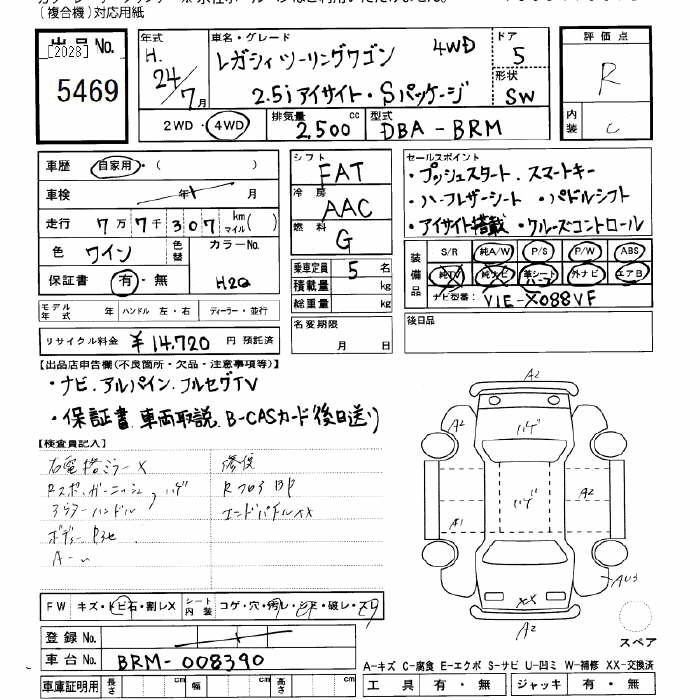 (複合機)対応用紙
出品No.
[2028]
5469
年式
H.
24/7月
車名・グレード
レガシィツーリングワゴン 4WD
2.5i アイサイト・Sパッケージ
ドア
5
形状
SW
2WD・4WD
排気量
2,500 cc
型式
DBA-BRM
評価点
R
内装
C
車歴 自家用・( )
車検 年 月
走行 7万7千307 km マイル( )
色 ワイン
色替
カラーNo.
H2Q
保証書 有・無
モデル年式 年 ハンドル 左・右 ディーラー・並行
リサイクル料金 ¥14,720 円 預託済
シフト
FAT
冷房
AAC
燃料
G
乗車定員 5 名
積載量 kg
総重量 kg
名変期限
月 日
セールスポイント
・プッシュスタート. スマートキー
・ハーフレザーシート ・パドルシフト
・アイサイト搭載・クルーズコントロール
装備品
S/R 純A/W P/S P/W ABS
純TV 純ナビ 革シート ハーフ 外ナビ エアB
ナビ型番: VIE-X088VF
後日品
【出品店申告欄(不良箇所・欠品・注意事項等)】
・ナビ.アルパイン.フルセグTV
・保証書.車両取説.B-CASカード後日送り
【検査員記入】
右電格ミラーX
ハゲ
ボディー
A-
修復
Rフロア BP
エンドパネルXX
FW キズ・トビ石・割レX
シート内装 コゲ・穴・汚レ・シミ・破レ・スレ
登録No.
車台No. BRM-008390
車庫証明用 長さ cm 幅 cm 高さ cm
A2
A2
ハゲ
ハゲ
A2
A1
XX
A2
スペア
A-キズ C-腐食 E-エクボ S-サビ U-凹ミ W-補修 XX-交換済
工具 有・無 ジャッキ 有・無